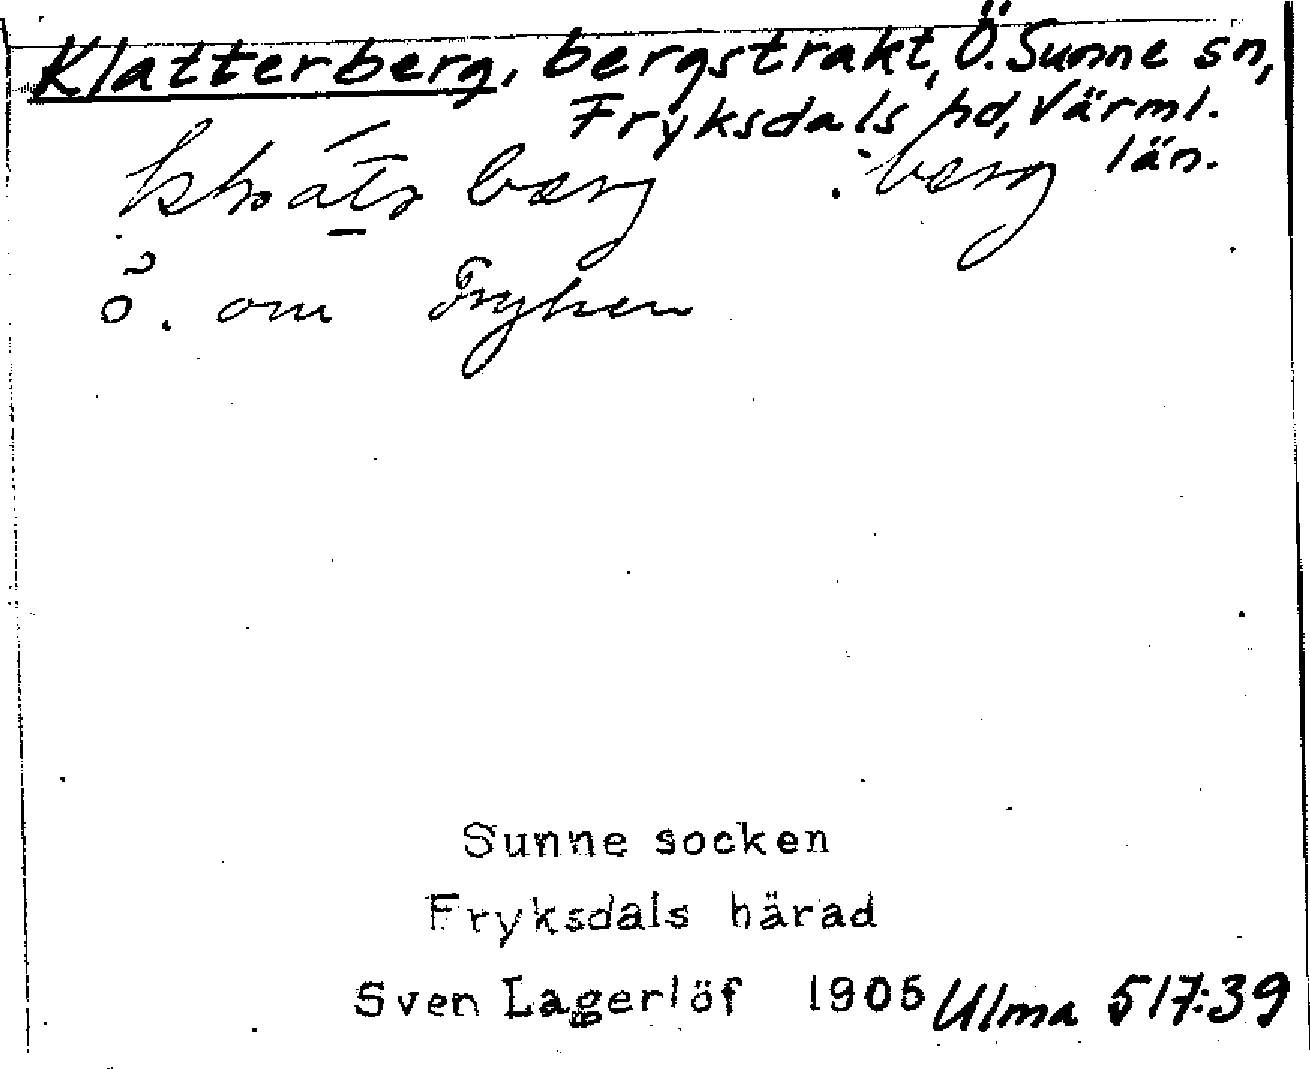 Klatterberg, bergstrakt, Ö. Sunne sn,
Fryksdals hd, Värml.
län.
bærg
ö. om Fryken
Sunne socken
Fryksdals härad
Sven Lagerlöf 1905 Ulma 517:39